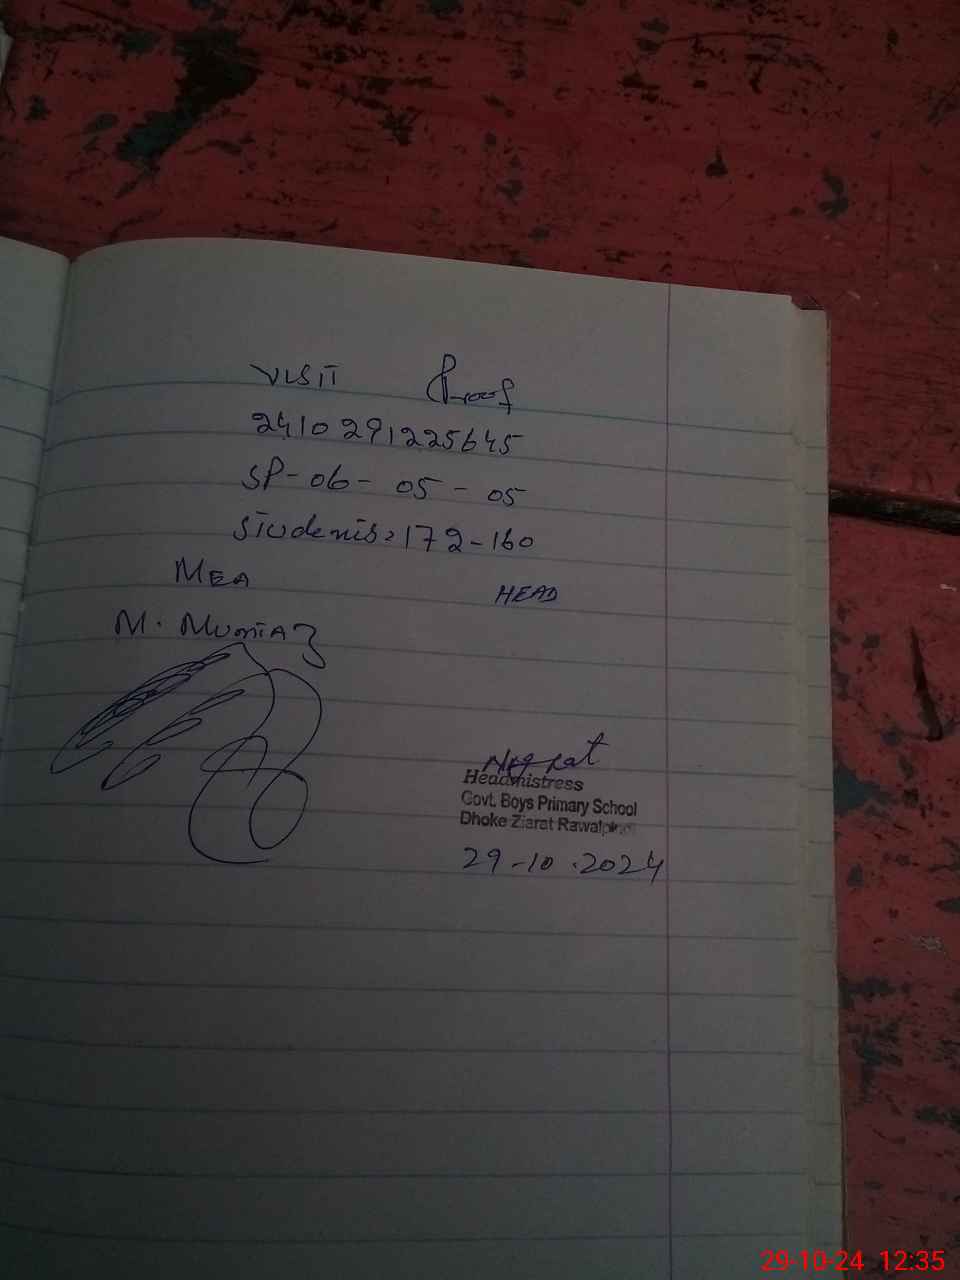 VISIT Proof
2410291225645
SP-06-05-05
Students: 172-160
MEA HEAD
M. Mumtaz
Headmistress
Govt. Boys Primary School
Dhoke Ziarat Rawalpindi
29-10-2024
29-10-24 12:35